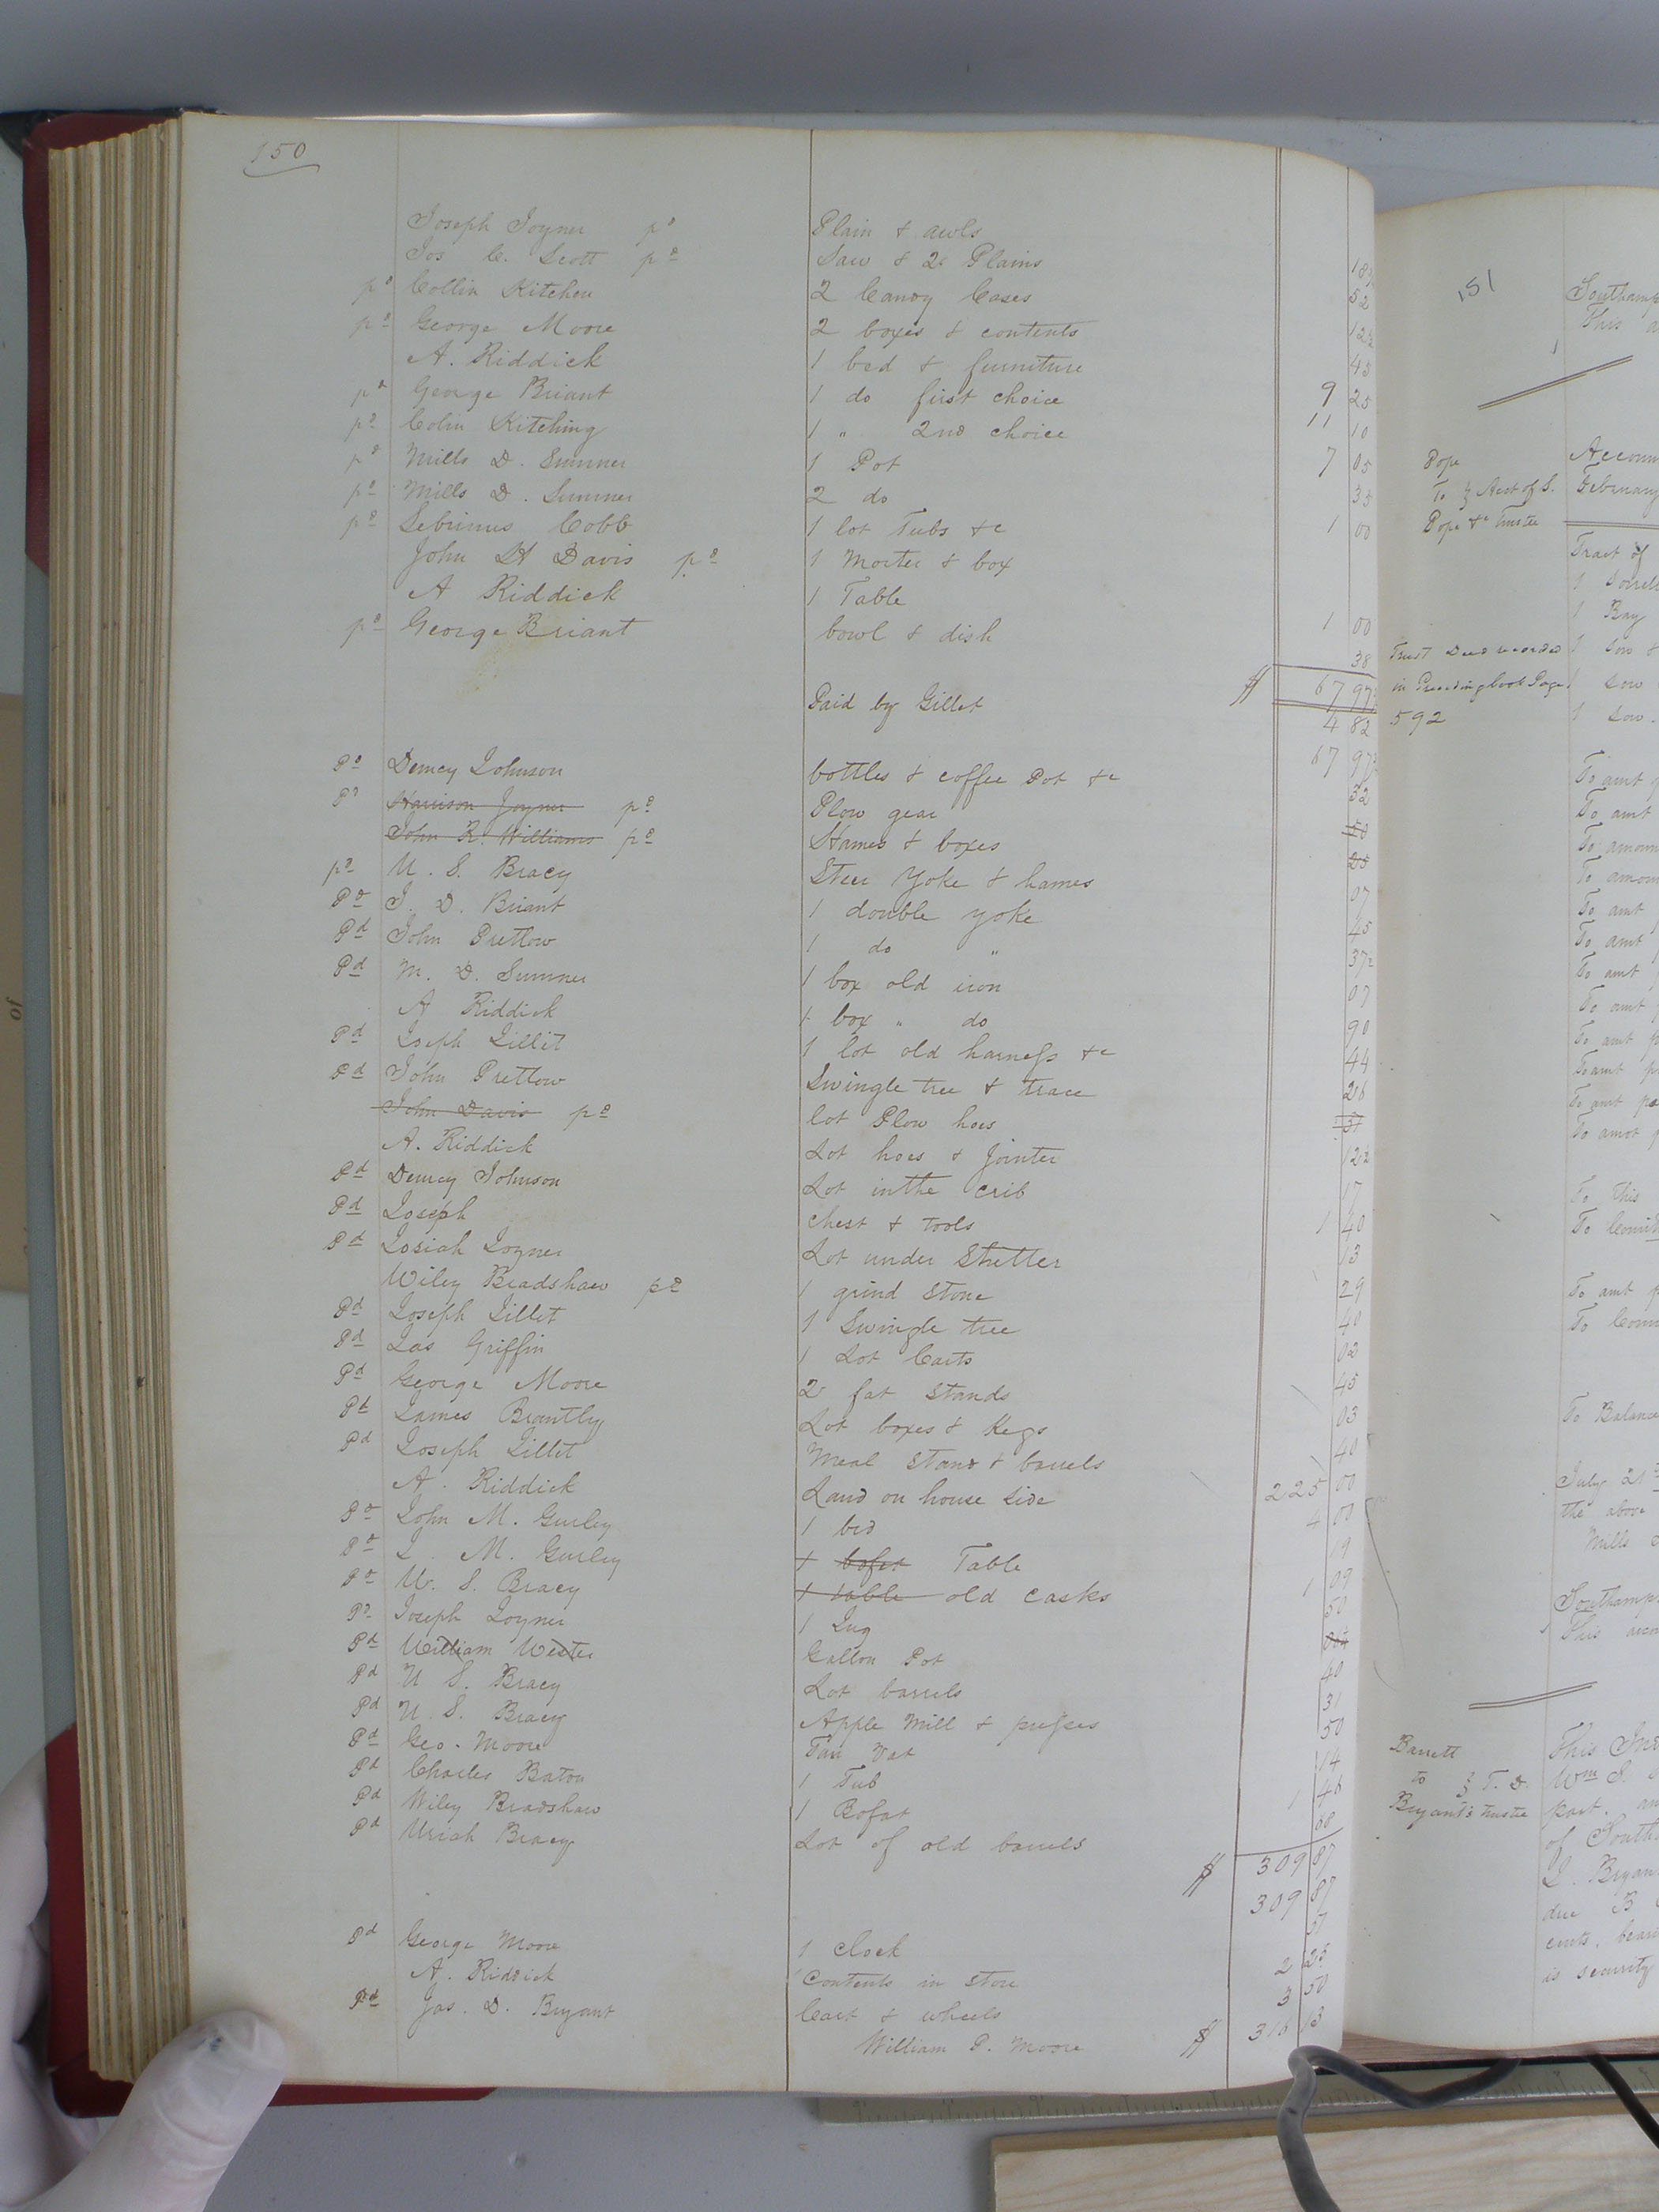 150
Joseph Joyner pd Plain & awls 18¾
Jos C. Scott pd Saw & 2 Plains 52
pd Collin Kitchen 2 Candy Cases 12½
pd George Moore 2 boxes & contents 45
A. Riddick 1 bed & furniture 9 25
pd George Briant 1 do first choice 11 10
pd Colin Kitching 1 " 2nd choice 7 05
pd Mills D. Sumner 1 Pot 35
pd Mills D. Sumner 2 do 1 00
pd Sebrinus Cobb 1 lot Tubs &c
John H Davis pd 1 Morter & box
A Riddick 1 Table 1 00
pd George Briant bowl & dish 38
$ 67 97½
Paid by Gillet 4 82
67 97½
Pd Demcy Johnson bottles & coffee Pot &c 32
Pd Harrison Joyner pd Plow gear 50
John R. Williams pd Hames & boxes 25
pd U. S. Bracy Steer Yoke & hames 07
Pd J. D. Briant 1 double yoke 45
Pd John Pretlow 1 do " 37½
Pd M. D. Sumner 1 box old iron 07
A Riddick 1 box " do 90
Pd Joseph Jillit 1 lot old harness &c 44
Pd John Pretlow Swingle tree & trace 26
John Davis pd lot Plow hoes 31
A. Riddick Lot hoes & Jointer 12½
Pd Demcy Johnson Lot in the crib 17
Pd Joseph chest & tools 1 40
Pd Josiah Joyner Lot under Shelter 13
Wiley Bradshaw pd 1 grind stone 29
Pd Joseph Jillet 1 Swingle tree 40
Pd Jas Griffin 1 Lot Carts 02
Pd George Moore 2 fat stands 45
Pd James Brantly Lot boxes & Kegs 03
Pd Joseph Jillet Meal stand & barrels 40
A. Riddick Land on house side 225 00
Pd John M. Gurley 1 bed 4 00
Pd J. M. Gurley 1 bofet Table 19
Pd U. S. Bracy 1 table old casks 1 09
Pd Joseph Joyner 1 Jug 50
Pd William Wester Gallon Pot
Pd U S. Bracy Lot barrels 40
Pd U. S. Bracy Apple Mill & presses 31
Pd Geo. Moore Tan Vat 50
Pd Charles Baton 1 Tub 14
Pd Wiley Bradshaw 1 Bofat 1 46
Pd Uriah Bracy Lot of old barrels 60
$ 309 87
309 87
Pd George Moore 1 Clock 51
A. Riddick Contents in store 2 25
Pd Jas. D. Bryant Cart & wheels 3 50
William P. Moore $ 316 13
151
Pope
To } Acct of S.
Pope &c Trustee
February
Tract of
1 Sorrel
1 Bay
Trust Deed recorded
in Preceding book Page
592
1 Sow
1 Sow
1 Sow
To amt
To amt
To amt
To amt
To amt
To amt
To amt
To amt
To This
To amt
To Balance
July 21
the above
Mills
Barrett
to } T. D.
Bryant's Trustee
Wm S.
part. an
of South
J. Bryan
due B
cents,
is security